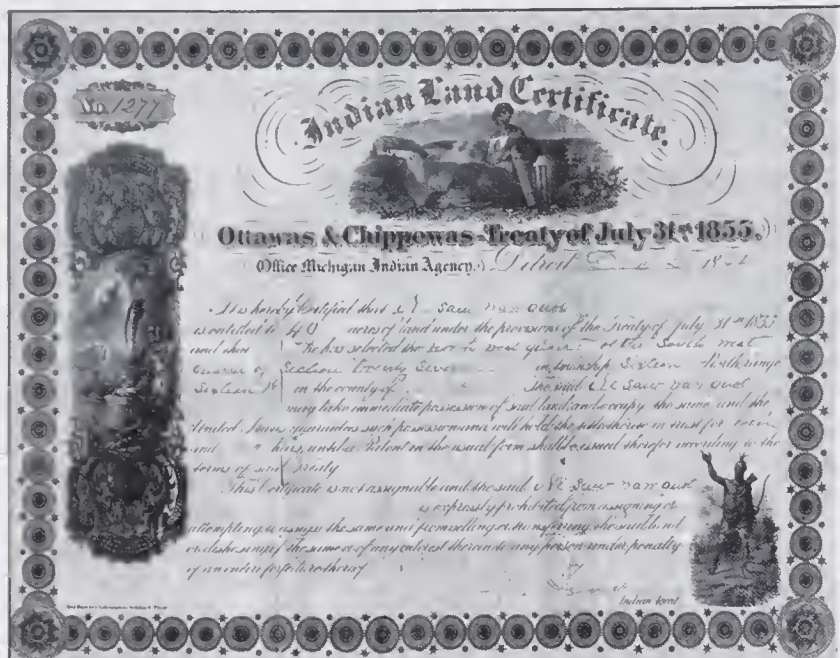 No. 1277
Indian Land Certificate.
Ottawas & Chippewas-Treaty of July 31st 1855.
Office Michigan Indian Agency. Detroit 18
It is hereby Certified that saw nan quot
is entitled to 40 acres of land under the provisions of the Treaty of July 31st 1855
and that he has selected the of the South West
quarter of Section Twenty Seven in township Sixteen North range
Sixteen in the county of the said saw nan quot
may take immediate possession of said land and occupy the same and the
United States guarantees such possession and will hold the title thereto in trust for
and heirs, until a Patent in the usual form shall be issued therefor according to the
terms of said Treaty
This Certificate is not assignable and the said saw nan quot
is expressly prohibited from assigning or
attempting to assign the same and from selling or transferring the said land
or disposing of the same or of any interest therein to any person under penalty
of an entire forfeiture thereof
Indian Agent